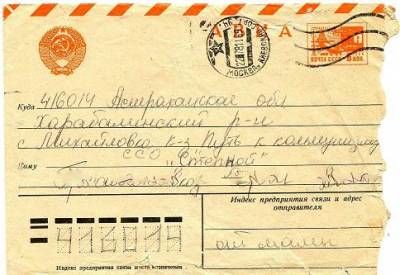 АВИА
ПОЧТА СССР
МОСКВА
Куда 416014 Астраханская обл
Харабалинский р-н
с Михайловка к-з Путь к коммунизму
ССО "Степной"
Кому
Индекс предприятия связи и адрес
отправителя
416014
от мамы
Индекс предприятия связи места назначения